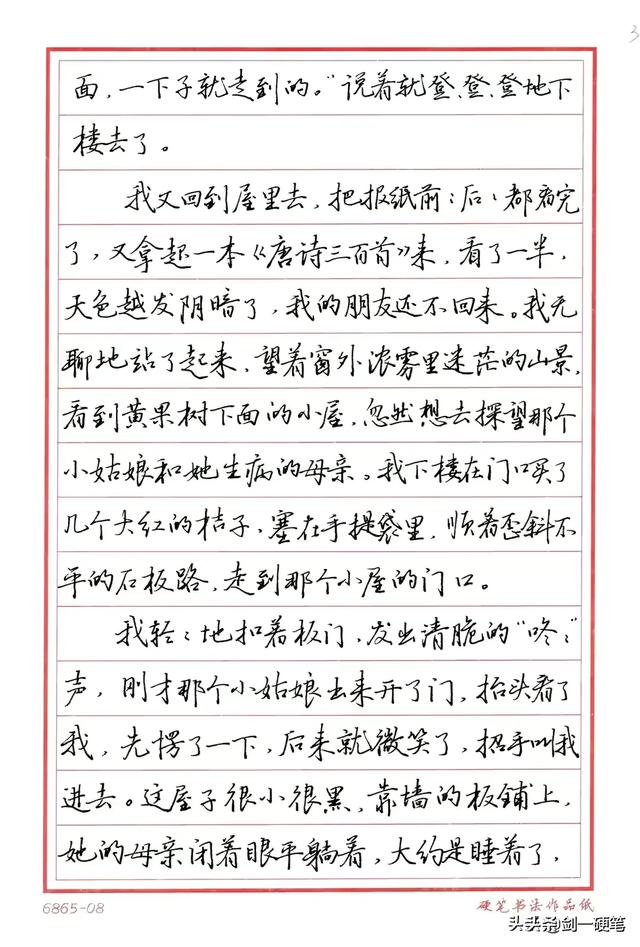 3
面，一下子就走到的。”说着就登、登、登地下
楼去了。
我又回到屋里去，把报纸前：后：都看完
了，又拿起一本《唐诗三百首》来，看了一半，
天色越发阴暗了，我的朋友还不回来。我无
聊地站了起来，望着窗外浓雾里迷茫的山景，
看到黄果树下面的小屋，忽然想去探望那个
小姑娘和她生病的母亲。我下楼在门口买了
几个大红的桔子，塞在手提袋里，顺着歪斜不
平的石板路，走到那个小屋的门口。
我轻：地扣着板门，发出清脆的“咚：”
声，刚才那个小姑娘出来开了门，抬头看了
我，先愣了一下，后来就微笑了，招手叫我
进去。这屋子很小很黑，靠墙的板铺上，
她的母亲闭着眼平躺着，大约是睡着了，
6865-08
硬笔书法作品纸
头条@剑一硬笔